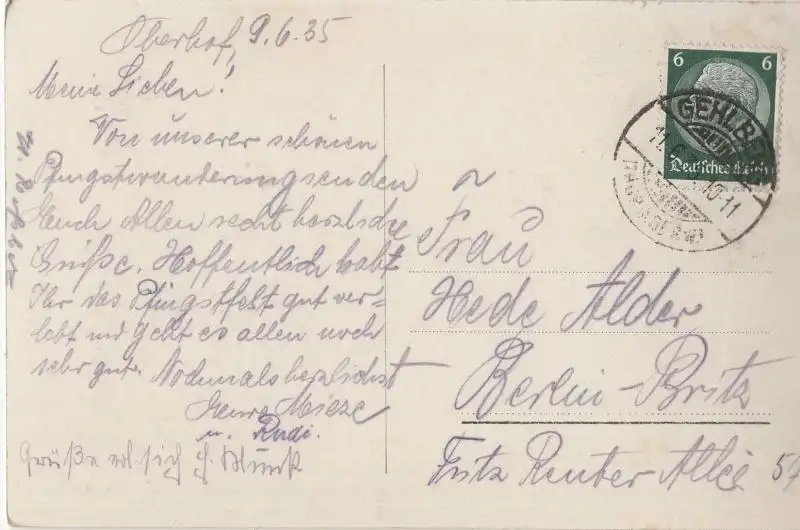 Oberhof, 9.6.35
Meine Lieben!
Von unserer schönen
Pfingstwanderung senden
Euch Allen recht herzliche
Grüße. Hoffentlich habt
Ihr das Pfingstfest gut ver-
lebt und geht es allen noch
sehr gut. Nochmals herzlichst
Eure Mieze
u. Rudi.
Grüße
sich
Frau
Hede Alder
Berlin-Britz
Fritz Reuter Allee 54
6 6
Deutsches Reich
GEHLBE
11.6
10-11